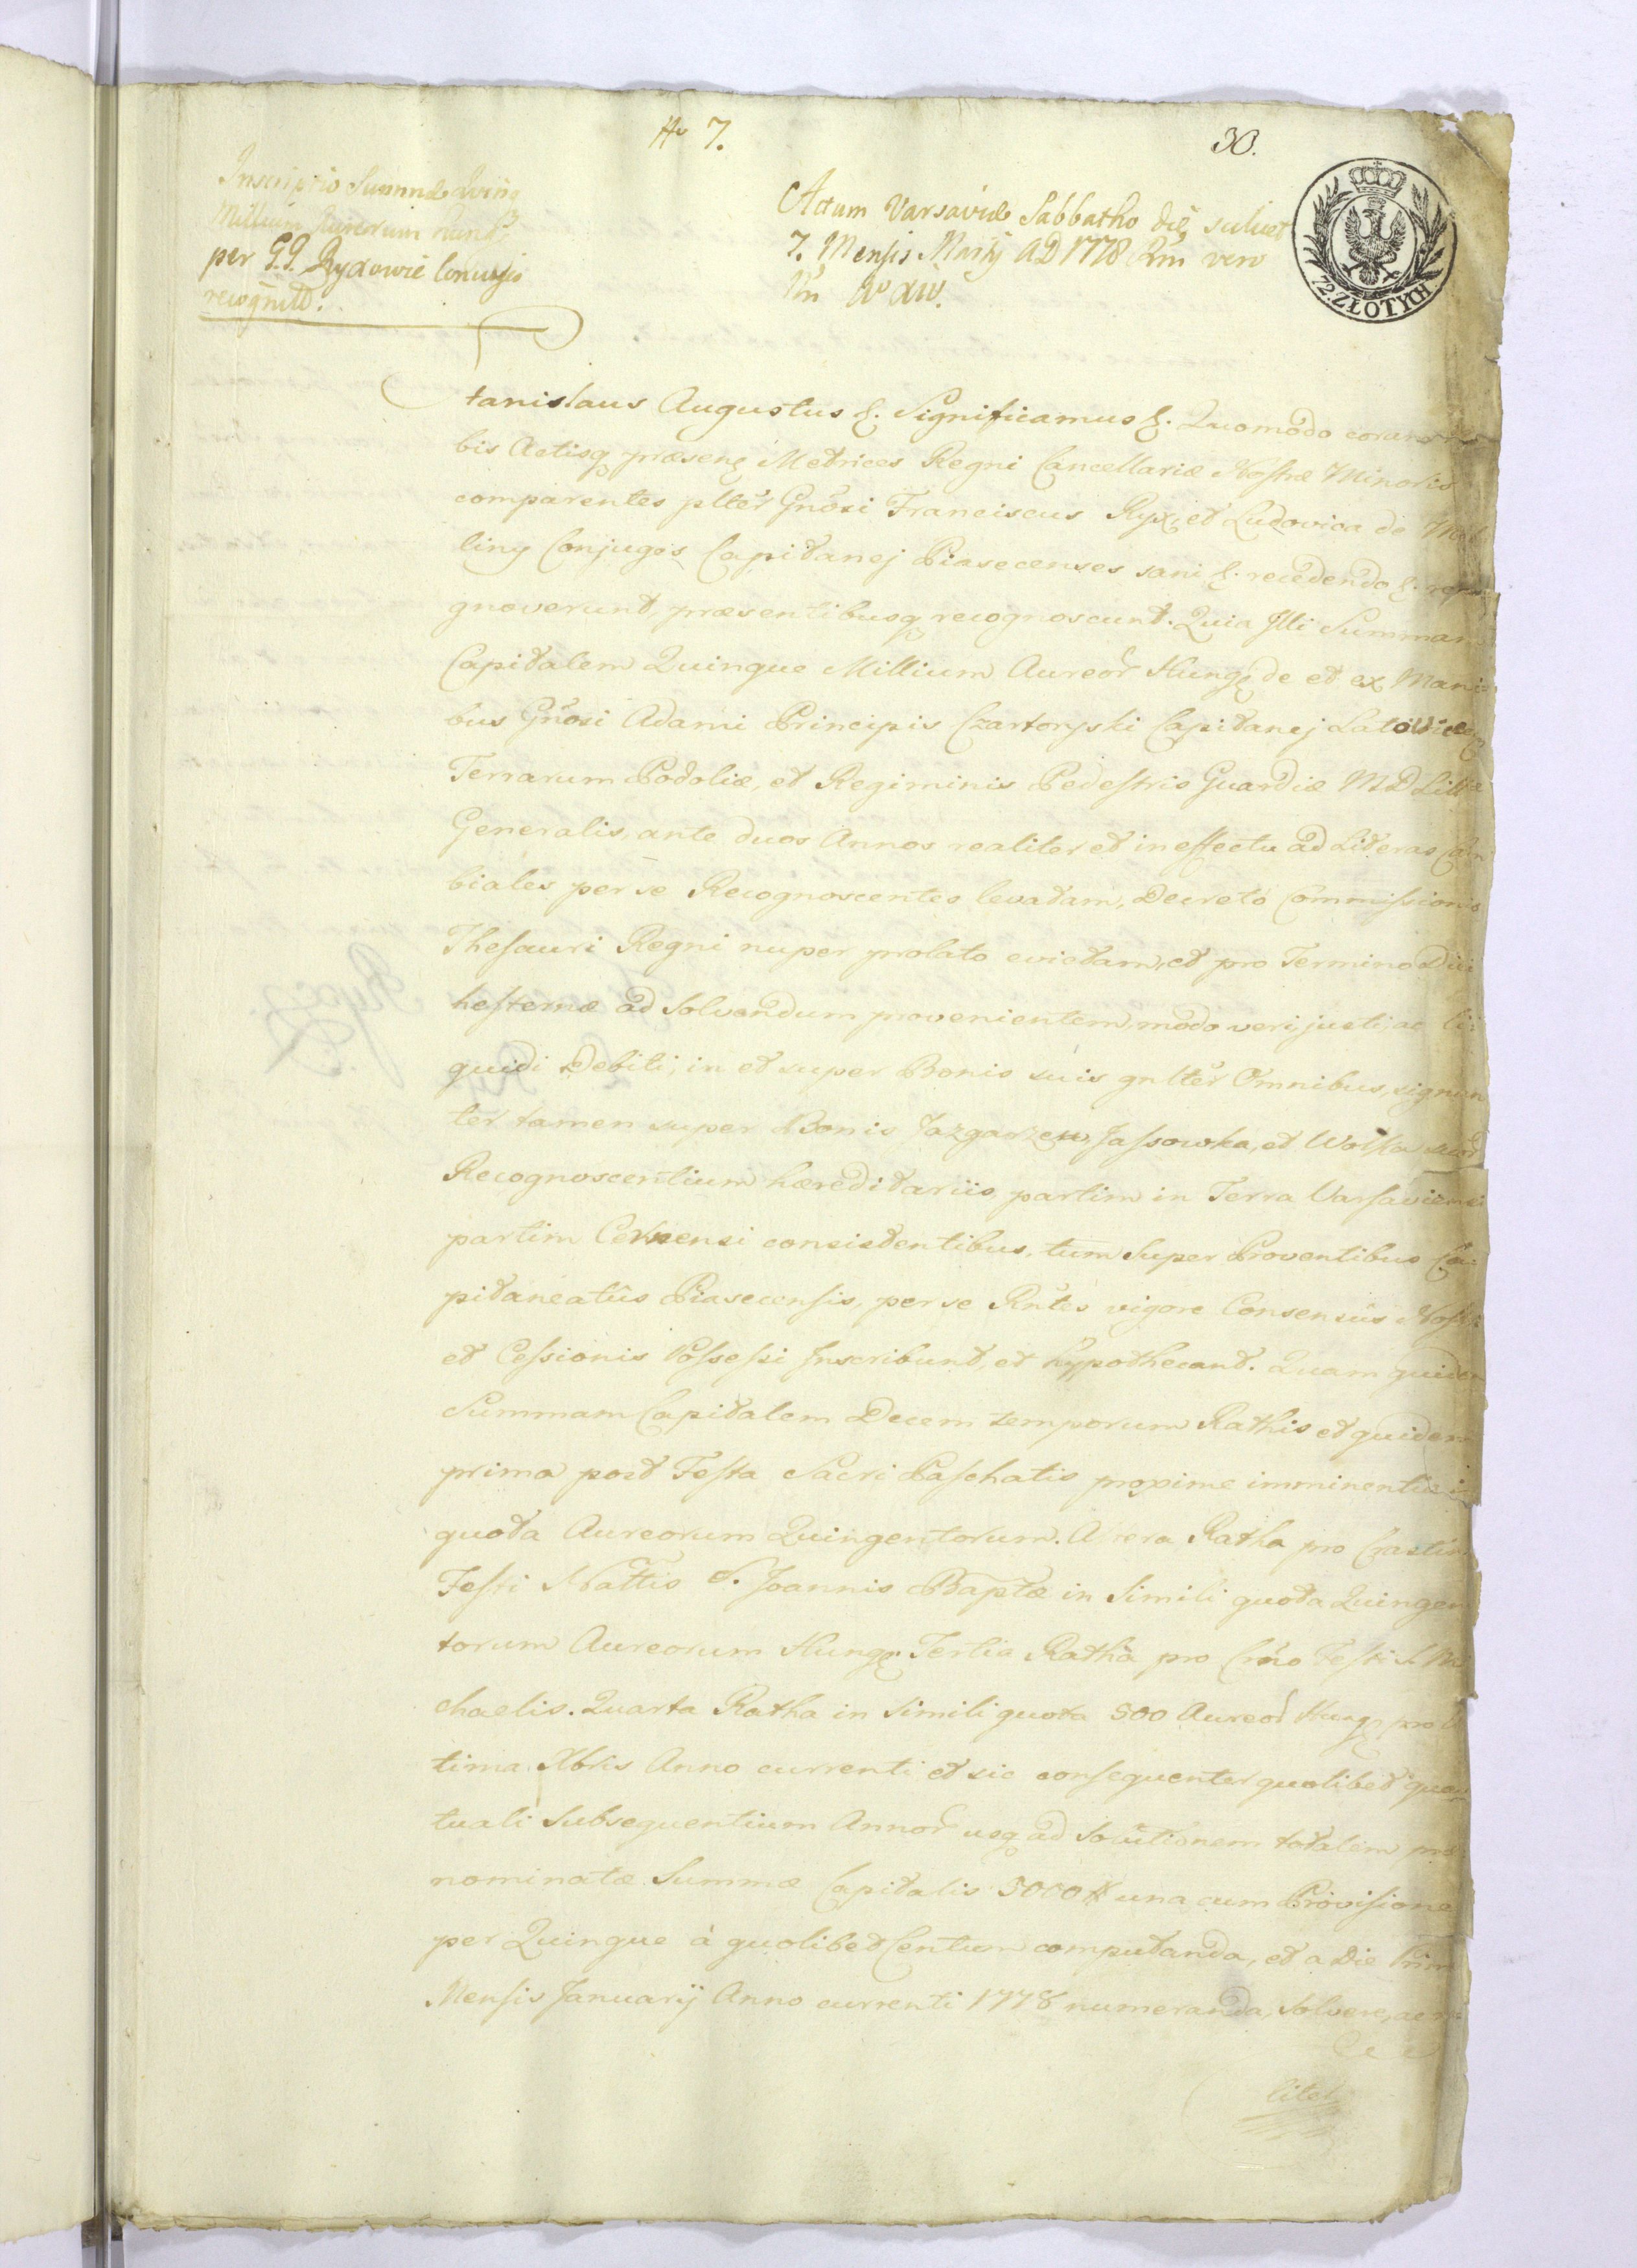 No 7.
30.
Inscriptio Summæ Quinq
Millium Aureorum Hung
per G.G. Ryxowie Conuges
recognita.
Actum Varsaviæ Sabbatho die scilicet
7. Mensis Martij AD 1778 Rni vero
Nri Ao XIV.
72. ZŁOTYCH
Stanislaus Augustus &. Significamus &. Quomodo coram
bis Actisq præsens Metrices Regni Cancellariæ Nostræ Minoris
comparentes pltter Gnosi Franciscus Ryx, et Ludovica de
liny Conjuges Capitanej Piasecenses sani &. recedendo &.
gnoverunt, præsentibusq recognoscunt. Quia Illi Summam
Capitalem Quinque Millium Aureor Hung de et ex Mani=
bus Gnosi Adami Principis Czartoryski Capitanej
Terrarum Podoliæ, et Regiminis Pedestris Guardiæ MD Litt
Generalis, ante duos Annos realiter et in effectu ad Literas Cam
biales per se Recognoscentes levatam, Decreto Commissionis
Thesauri Regni nuper prolato evictam, et pro Termino Diei
hesternæ ad solvendum provenientem, modo veri, justi, ac li
quidi Debiti, in et super Bonis suis gnltter Omnibus, signan
ter tamen super Bonis Jazgarzew, Jassowka, et Wolka
Recognoscentium hæreditariis, partim in Terra Varsaviensi
partim Cernensi consistentibus, tum super Proventibus Ca=
pitaneatûs Piasecensis, per se Rntes vigore Consensûs Nostri
et Cessionis Possessi Inscribunt, et hypothecant. Quam quidem
Summam Capitalem Decem temporum Rathis et quidem
prima post Festa Sacri Paschatis proxime imminentia in
quota Aureorum Quingentorum. Altera Ratha pro Crastin
Festi Nattis S. Joannis Baptæ in Simili quota Quingen
torum Aureorum Hung. Tertia Ratha pro Crno Festi S. Mi
chaelis. Quarta Ratha in simili quota 500 Aureor Hung pro
tima Xbris Anno currenti et sic consequenter quolibet quar
tuali Subsequentium Annor usq ad Solutionem totalem præ
nominatæ Summæ Capitalis 5000 # una cum Provisione
per Quinque à quolibet Centum computanda, et a Die Prim
Mensis Januarij Anno currenti 1778 numeranda, Solvere, ac